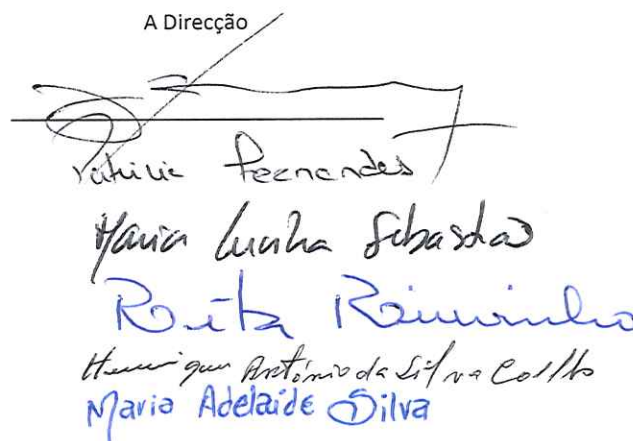 A Direcção
Patricia Fernandes
Maria Lucília Sebastião
Rita
Henrique António da Silva Coelho
Maria Adelaide Silva